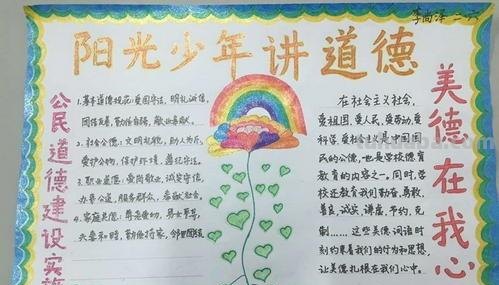 李尚泽 二六
阳光少年讲道德
公民道德建设实施
1.基本道德规范：爱国守法，明礼诚信，
团结友善，勤俭自强，敬业奉献。
2.社会公德：文明礼貌，助人为乐，
爱护公物，保护环境，遵纪守法。
3.职业道德：爱岗敬业，诚实守信，
办事公道，服务群众，奉献社会。
4.家庭美德：尊老爱幼，男女平等，
夫妻和睦，勤俭持家，邻里团结
在社会主义社会，
爱祖国，爱人民，爱劳动，爱
科学，爱社会主义是中国国
民的公德，也是学校德育
教育的内容之一。同时，学
校还教育我们勤奋，勇敢，
善良，诚实，谦虚，节约，克
制……这些美德词语时
刻约束着我们的行为和思想，
让美德扎根在我们心中。
美德在我心